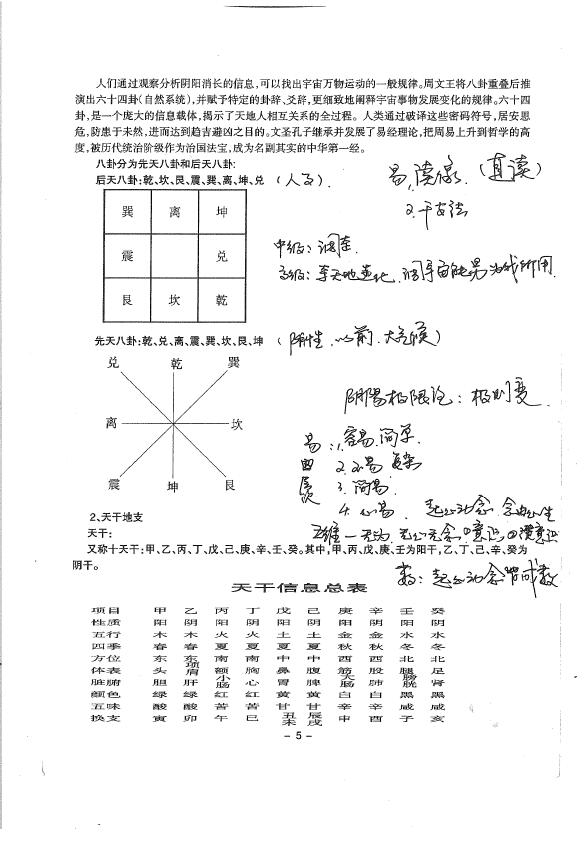 人们通过观察分析阴阳消长的信息,可以找出宇宙万物运动的一般规律。周文王将八卦重叠后推
演出六十四卦(自然系统),并赋予特定的卦辞、爻辞,更细致地阐释宇宙事物发展变化的规律。六十四
卦,是一个庞大的信息载体,揭示了天地人相互关系的全过程。人类通过破译这些密码符号,居安思
危,防患于未然,进而达到趋吉避凶之目的。文圣孔子继承并发展了易经理论,把周易上升到哲学的高
度,被历代统治阶级作为治国法宝,成为名副其实的中华第一经。
八卦分为先天八卦和后天八卦:
后天八卦:乾、坎、艮、震、巽、离、坤、兑
(人文).
(直读)
2.干支法
巽 离 坤
震 兑
艮 坎 乾
中级:调
高级:天地造化.调宇宙能易为我所用.
先天八卦:乾、兑、离、震、巽、坎、艮、坤
(阴性.以前.大气候)
兑 乾 巽
离 坎
震 坤 艮
阴阳极限论:极则变.
易:1.容易.简单.
2.不易 复杂
3.简易.
4.心易. 起心动念.念由心生
2、天干地支
天干:
又称十天干:甲、乙、丙、丁、戊、己、庚、辛、壬、癸。其中,甲、丙、戊、庚、壬为阳干,乙、丁、己、辛、癸为
阴干。
数:起心动念皆成数
天干信息总表
项目 甲 乙 丙 丁 戊 己 庚 辛 壬 癸
性质 阳 阴 阳 阴 阳 阴 阳 阴 阳 阴
五行 木 木 火 火 土 土 金 金 水 水
四季 春 春 夏 夏 夏 夏 秋 秋 冬 冬
方位 东 东 南 南 中 中 西 西 北 北
体表 头 项肩 额 胸 鼻 腹 筋 股 腿 足
脏腑 胆 肝 小肠 心 胃 脾 大肠 肺 膀胱 肾
颜色 绿 绿 红 红 黄 黄 白 白 黑 黑
五味 酸 酸 苦 苦 甘 甘 辛 辛 咸 咸
换支 寅 卯 午 巳 丑未 辰戌 申 酉 子 亥
- 5 -